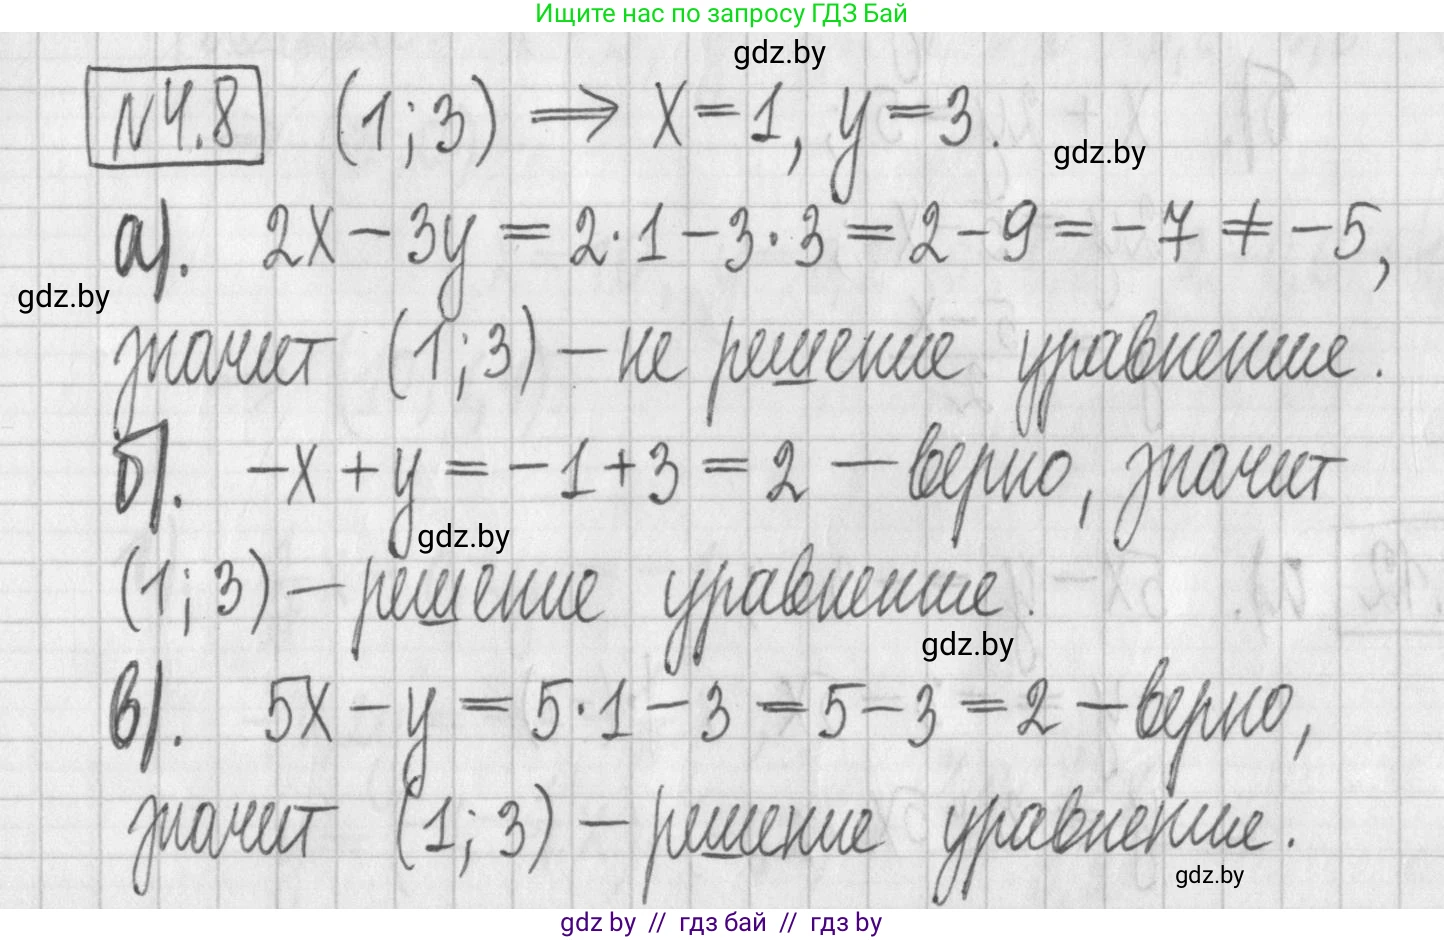 Ищите нас по запросу ГДЗ Бай
gdz.by
№4.8 (1;3) ⟹ x=1, y=3.
gdz.by
а). 2x-3y=2·1-3·3=2-9=-7≠-5,
gdz.by
значит (1;3) - не решение уравнение.
б). -x+y=-1+3=2 - верно, значит
gdz.by
(1;3) - решение уравнение.
gdz.by
в). 5x-y=5·1-3=5-3=2 - верно,
значит (1;3) - решение уравнение.
gdz.by
gdz by // гдз бай // гдз by